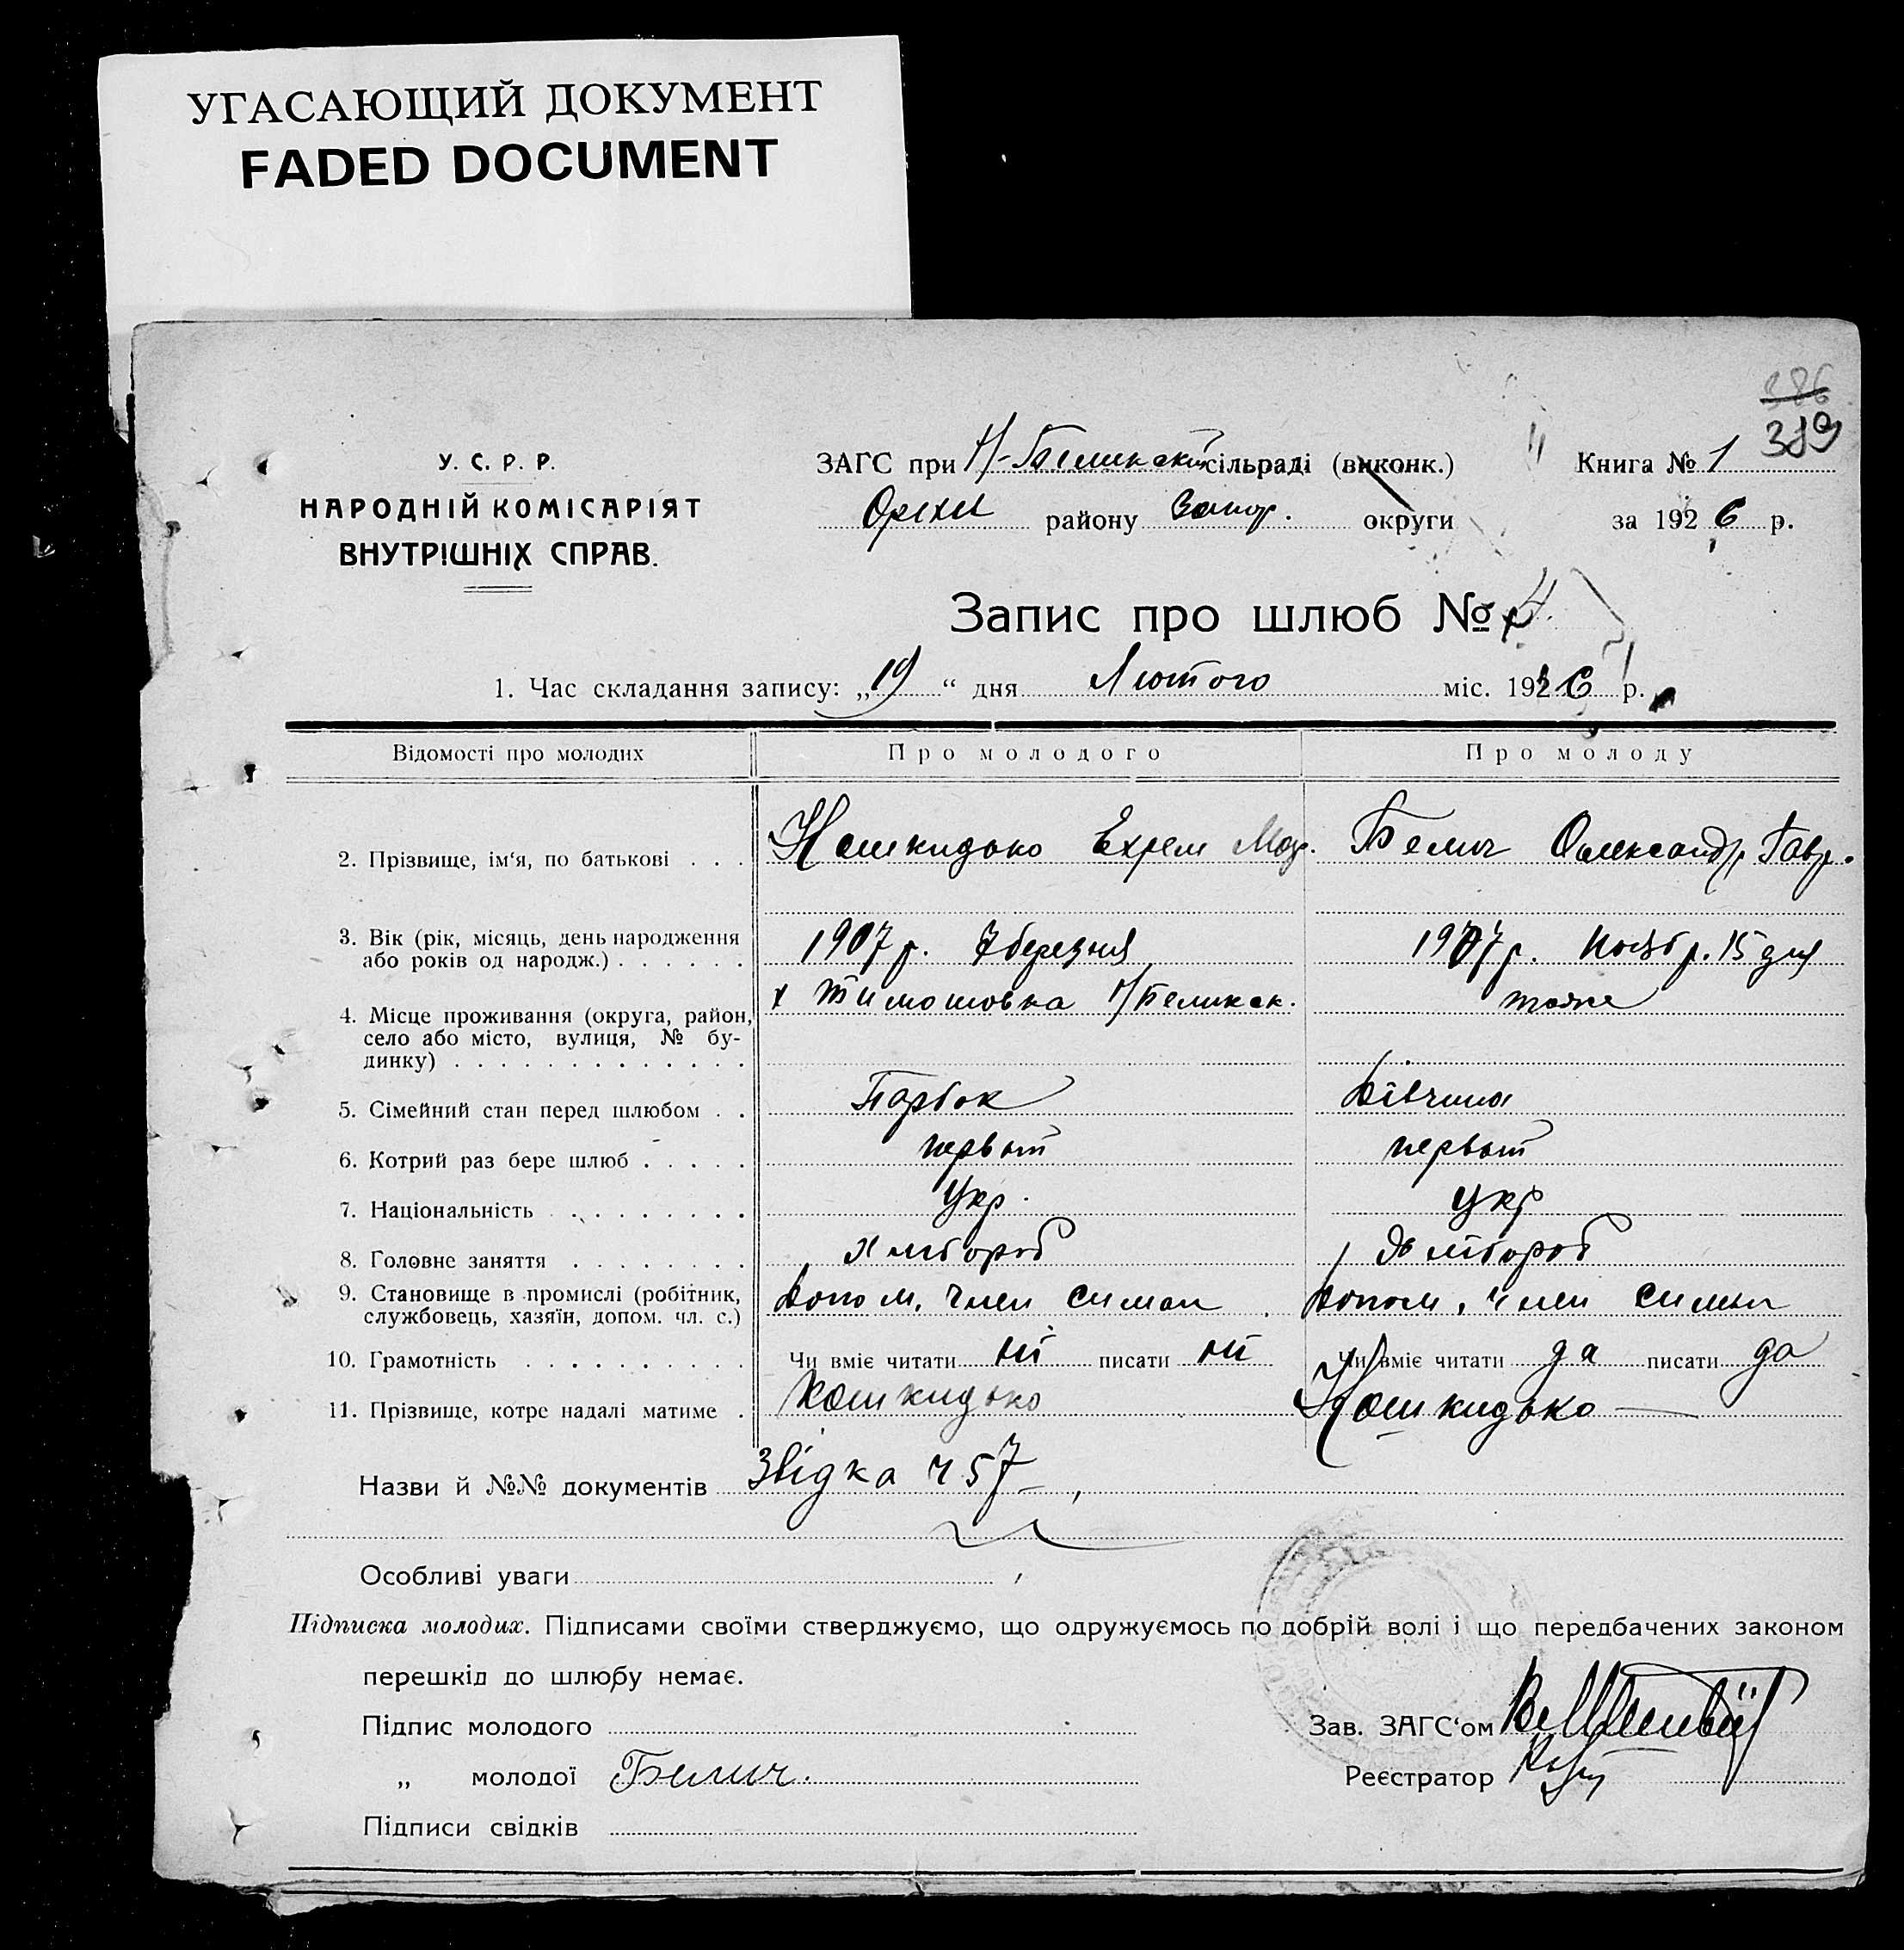 УГАСАЮЩИЙ ДОКУМЕНТ
FADED DOCUMENT
386
389
У. С. Р. Р.
НАРОДНІЙ КОМІСАРІЯТ
ВНУТРІШНІХ СПРАВ.
ЗАГС при сільраді (виконк.) Книга № 1
Орехи району Запор. округи за 1926 р.
Запис про шлюб № 4.
1. Час складання запису: „19“ дня Лютого міс. 1926 р.
Відомості про молодих Про молодого Про молоду
2. Прізвище, ім‘я, по батькові . . . Кошкидько Ехрем Белич Олександр. Гавр.
3. Вік (рік, місяць, день народження
або років од народж.) . . . . . . 1907 р. 7 березня 1907 р. Ноябр. 15 дня
4. Місце проживання (округа, район, х Тимошовка Н/Беликск. тоже
село або місто, вулиця, № бу-
динку) . . . . . . . . . . . . .
5. Сімейний стан перед шлюбом . . Парбок Дівчина
6. Котрий раз бере шлюб . . . . . первый первый
7. Національність . . . . . . . . Укр. Укр
8. Головне заняття . . . . . . . . хлібороб хлібороб
9. Становище в промислі (робітник, Допом. член симьи Допом. член симьи
службовець, хазяїн, допом. чл. с.)
10. Грамотність . . . . . . . . . . Чи вміє читати ні писати ні Чи вміє читати да писати да
11. Прізвище, котре надалі матиме . Кошкидько Кошкидько
Назви й №№ документів Звідка ч 57
Особливі уваги
Підписка молодих. Підписами своїми стверджуємо, що одружуємось по добрій волі і що передбачених законом
перешкід до шлюбу немає.
Підпис молодого Зав. ЗАГС‘ом
„ молодої Белич. Реєстратор
Підписи свідків